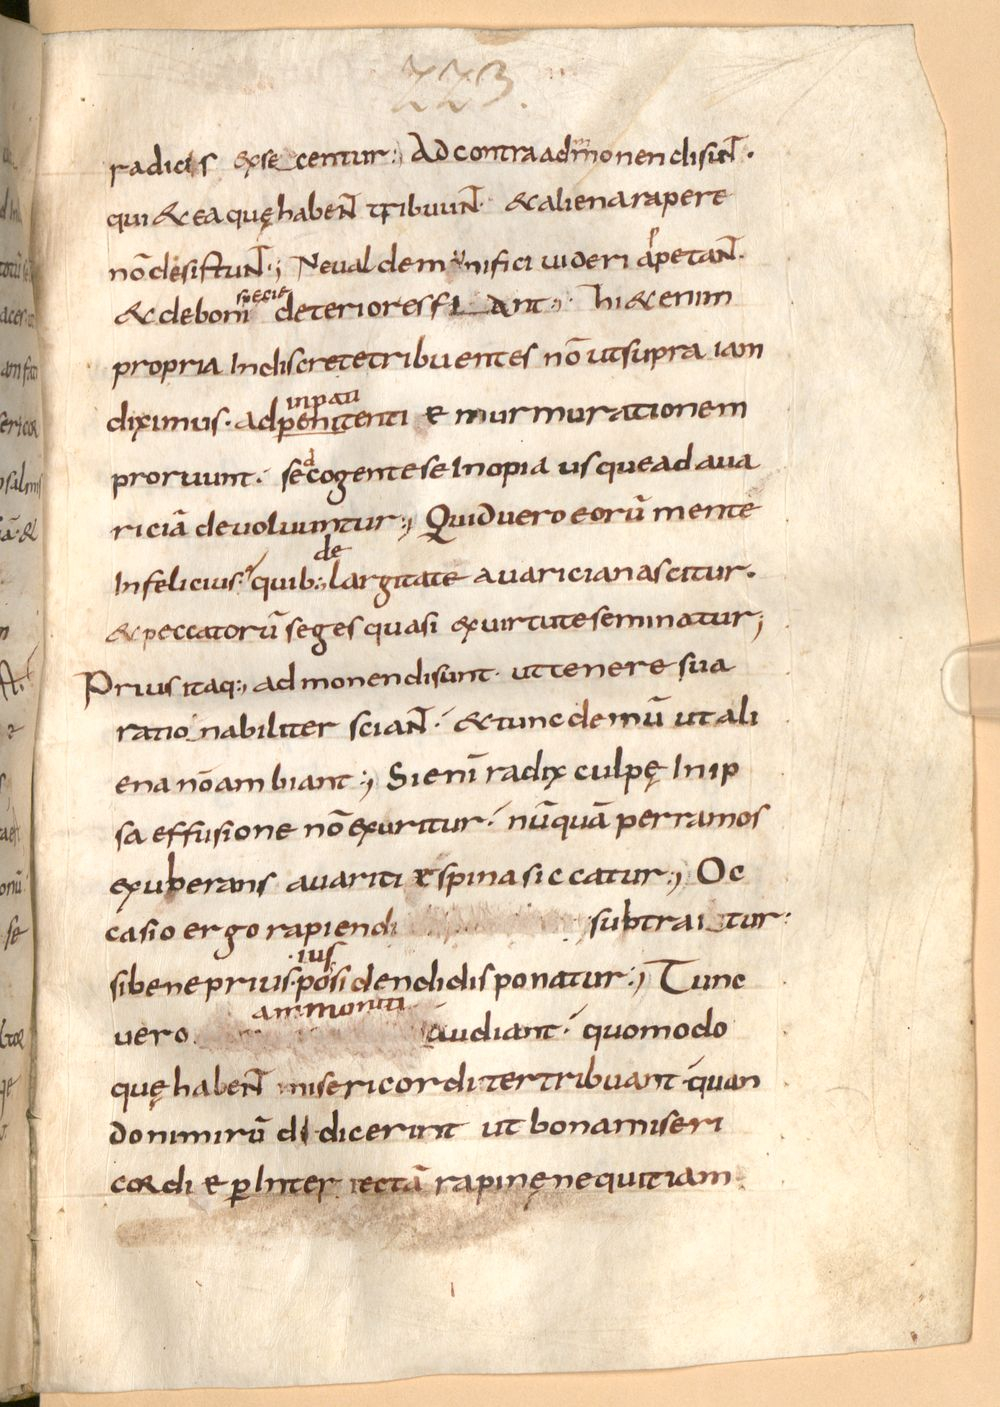 223.
radicis exsecentur:, At contra admonendi sunt·
qui & ea quę habent tribuunt· & aliena rapere
nō desistunt:, Ne valde munifici videri appetant·
& de boni specie deteriores fiant:, hi & enim
propria Indiscrete tribuentes nō ut supra iam
diximus· ad inpatientię murmurationem
proruunt· sed cogente se Inopia usque ad ava
riciā devolvuntur:, Quid vero eorū mente
Infelicius· quib: de largitate avaricia nascitur·
& peccatorū seges quasi ex virtute seminatur;
Prius itaq:, admonendi sunt· ut tenere sua
rationabiliter sciant· & tunc demū ut ali
ena nō ambiant:, Si enī radix culpę In ip
sa effusione nō exuritur· nūquā per ramos
exuberans avaritię spina siccatur:, Oc
casio ergo rapiendi subtraitur:
si bene prius· ius possidendi disponatur:, Tunc
vero ammoniti audiant· quomodo
quę habent misericorditer tribuant· quan
do nimirū didicerint ut bona miseri
cordię p Interiectā rapinę nequitiam